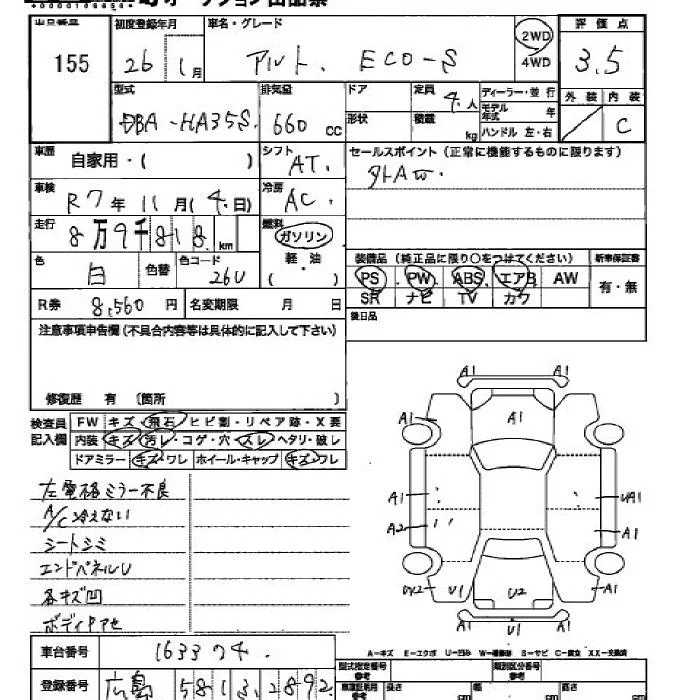 出品番号 初度登録年月 車名・グレード 2WD 評価点
155 26 1月 アルト. ECO-S 4WD 3.5
型式 排気量 ドア 定員 4.人 ディーラー・並行 外装 内装
DBA-HA35S. 660 CC 形状 積載 kg モデル年式 年 C
ハンドル 左・右
車歴 自家用・( ) シフト AT. セールスポイント (正常に機能するものに限ります)
車検 R7年 11月 (4.日) 冷房 AC.
走行 8万9千818. km 燃料 ガソリン
色 白 色替 色コード 26U 軽・油 ( )
装備品 (純正品に限り〇をつけてください) 新車保証書
PS PW ABS エアB AW 有・無
SR ナビ TV カワ
R券 8,560 円 名変期限 月 日 後日品
注意事項申告欄 (不具合内容等は具体的に記入して下さい)
修復歴 有 〔箇所 〕
検査員記入欄
FW キズ・飛石・ヒビ割・リペア跡・X要
内装 キズ・汚レ・コゲ・穴・スレ・ヘタリ・破レ
ドアミラー キズ・ワレ ホイール・キャップ キズ・ワレ
左電格ミラー不良
A/C冷えない
シートシミ
エンドパネルU
各キズ凹
ボディアセ
A1 A1
A1 A1 A1
A1 UA1
A2 A1
U1 U2 A1
U1
A-キズ E-エクボ U-凹み W-補修跡 S-サビ C-腐食 XX-交換済
車台番号 163374.
登録番号 広島 581 3 2892
型式指定番号 参考 類別区分番号 参考
長さ cm 幅 cm 高さ cm